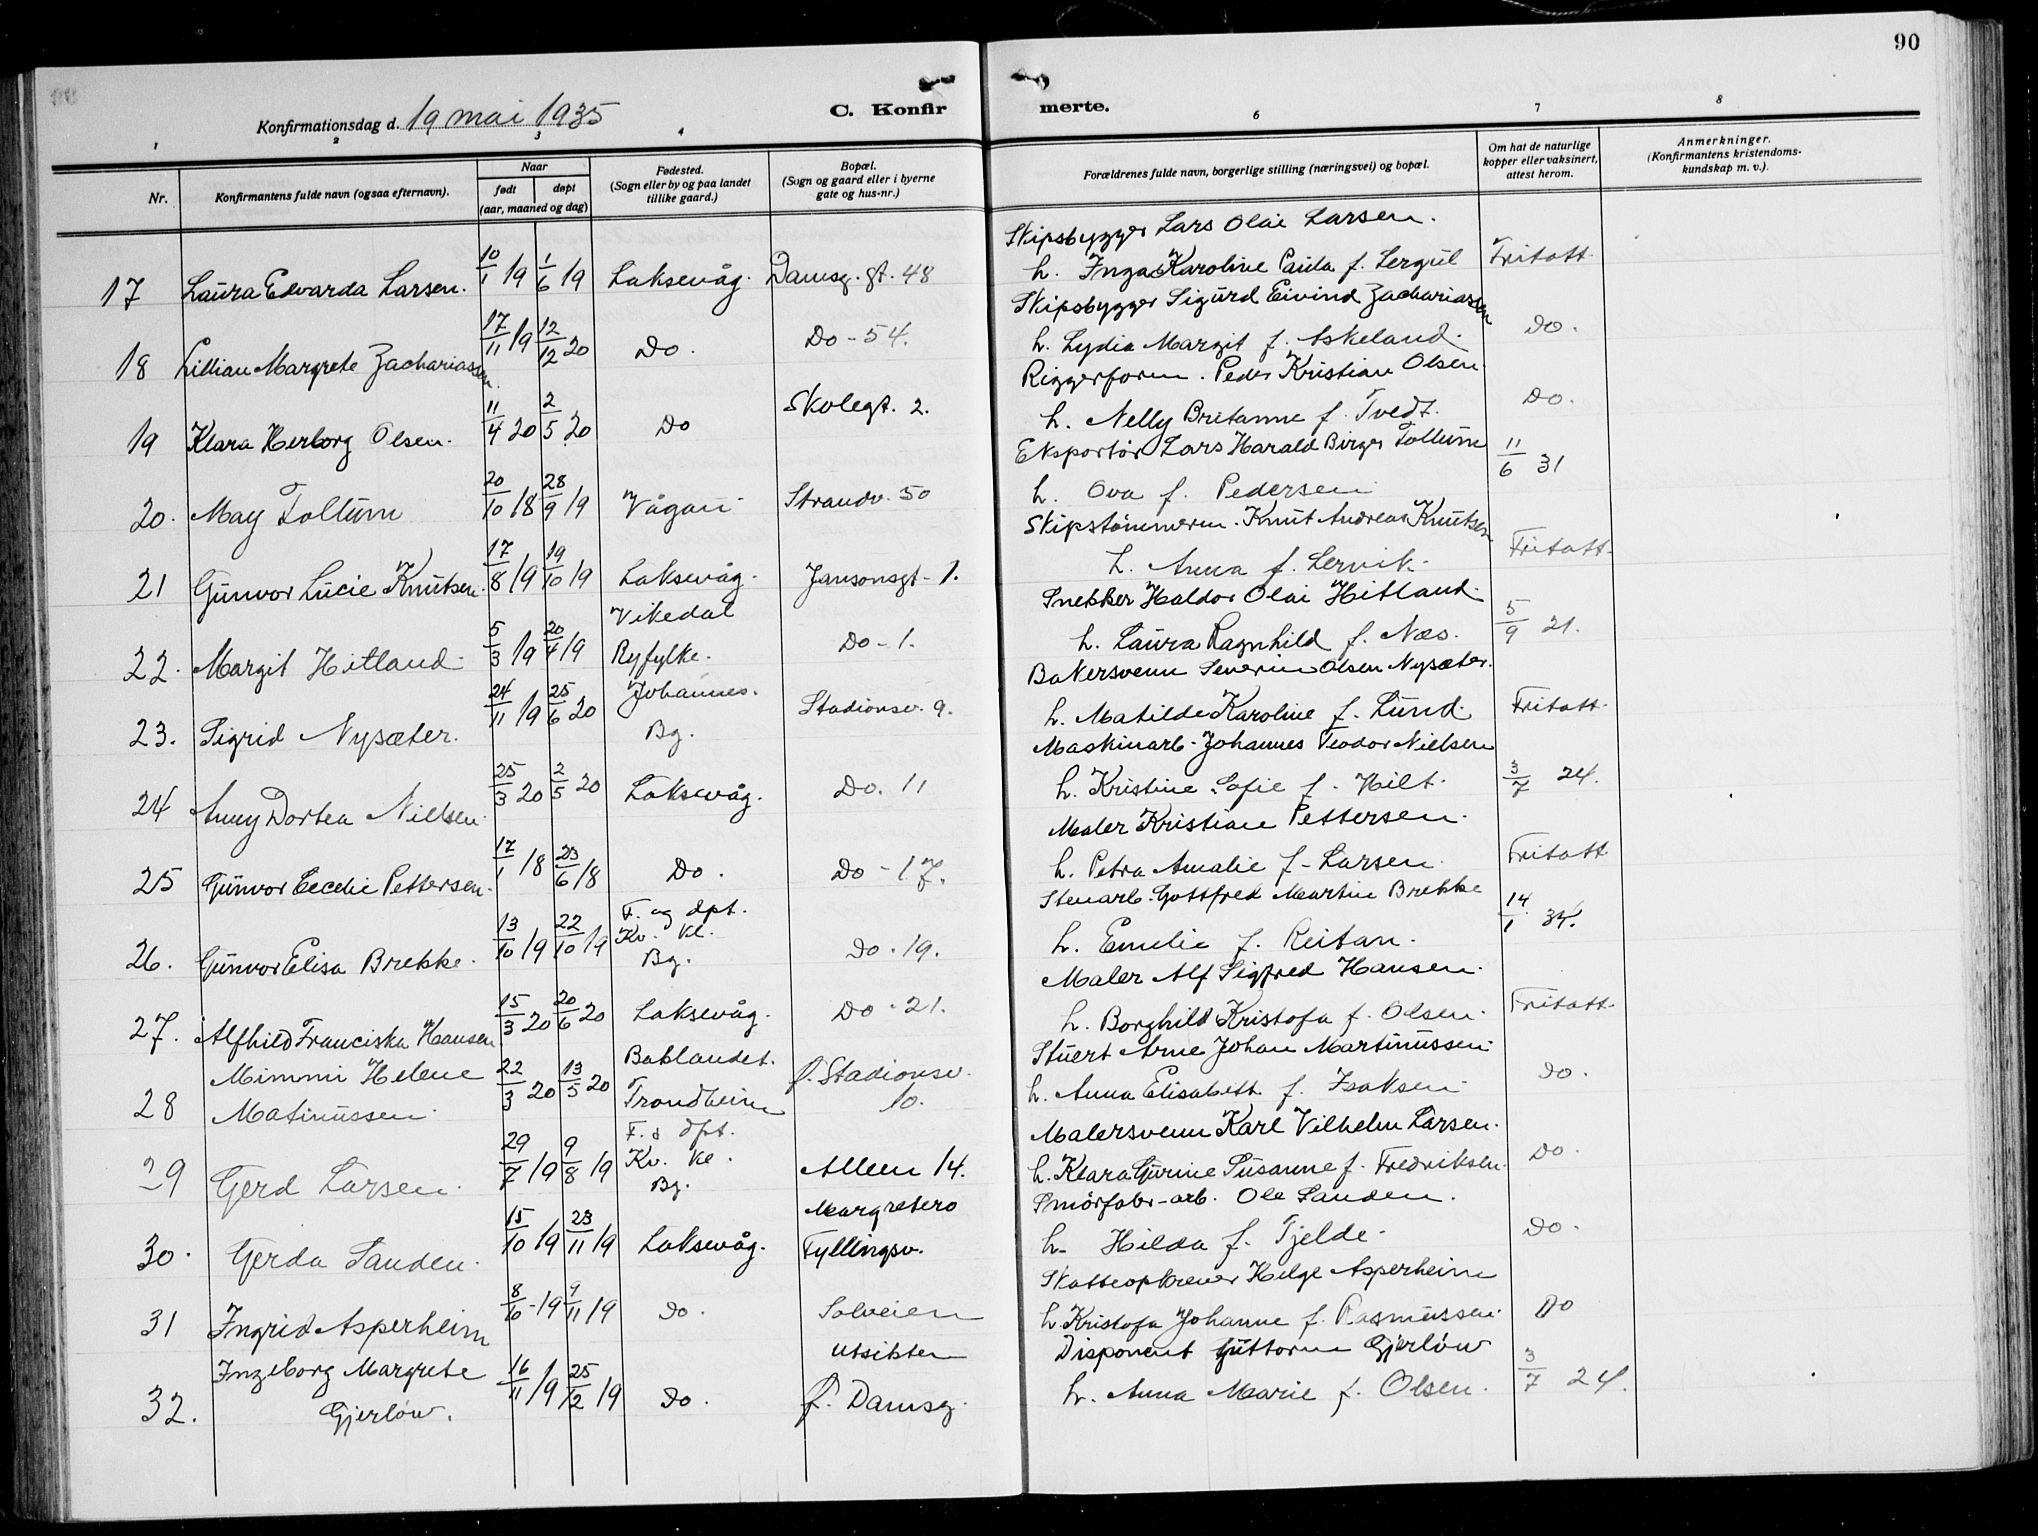 90
Konfirmationsdag d. 19 mai 1935
C. Konfir
merte.
1 2 3 4 6 7 8
Nr.
Konfirmantens fulde navn (ogsaa efternavn).
Naar
født døpt
(aar, maaned og dag)
Fødested.
(Sogn eller by og paa landet
tillike gaard.)
Bopæl.
(Sogn og gaard eller i byerne
gate og hus-nr.)
Forældrenes fulde navn, borgerlige stilling (næringsvei) og bopæl.
Om hat de naturlige
kopper eller vaksinert,
attest herom.
Anmerkninger.
(Konfirmantens kristendoms-
kundskap m. v.).
Skipsbygger Lars Olai Larsen.
17 Laura Edvarda Larsen. 10/1 19 1/6 19 Laksevåg. Damsg. gt. 48 h. Inga Karoline Paula f. Lergul Fritatt.
Skipsbygger Sigurd Eivind Zachariassen
18 Lillian Margrete Zachariassen. 17/11 19 12/12 20 Do. Do - 54. h. Lydia Margit f. Askeland. Do.
Riggerform. Peder Kristian Olsen.
19 Klara Herborg Olsen. 11/4 20 2/5 20 Do Skolegt. 2. h. Nelly Britanne f. Tvedt. Do.
Eksportør Lars Harald Birger Tollum
20. May Tollum 20/10 18 28/9 19 Vågan Strandv. 50 h. Ova f. Pedersen 11/6 31
Skipstømmerm. Knut Andreas Knutsen
21 Gunvor Lucie Knutsen. 17/8 19 19/10 19 Laksevåg. Jansonsgt - 1. h. Anna f. Lervik. Fritatt.
Snekker Haldor Olai Hitland.
22. Margit Hitland. 5/3 19 20/4 19 Vikedal
Ryfylke. Do - 1. h. Laura Ragnhild f. Næs. 5/9 21.
Bakersvenn Severin Olsen Nysæter.
23. Sigrid Nysæter. 24/11 19 25/6 20 Johannes.
Bg. Stadionsv. 9. h. Matilde Karoline f. Lund. Fritatt.
Maskinarb. Johannes Teodor Nielsen
24 Anny Dortea Nielsen. 25/3 20 2/5 20 Laksevåg. Do. 11 h. Kristine Sofie f. Hilt. 3/7 24.
Maler Kristian Pettersen.
25 Gunvor Cecelie Pettersen. 17/1 18 23/6 18 Do. Do - 17. h. Petra Amalie f. Larsen. Fritatt
Stenarb. Gottfred Martin Brekke
26. Gunvor Elisa Brekke. 13/10 19 22/10 19 F. og dpt.
Kv. kl.
Bg. Do. 19. h. Emelie f. Reitan. 14/1 34.
Maler Alf Sigfred Hansen.
27. Alfhild Franciska Hansen 15/3 20 20/6 20 Laksevåg. Do - 21. h. Borghild Kristofa f. Olsen. Fritatt.
Stuert Arne Johan Martinussen.
28 Mimmi Helene
Matinussen. 22/3 20 13/5 20 Baklandet.
Trondheim f. Stadionsv.
10. h. Anna Elisabeth f. Isaksen Do.
Malersvenn Karl Vilhelm Larsen.
29 Gerd Larsen. 29/7 19 9/8 19 F. & dpt.
Kv. kl.
Bg. Alleen 14. h. Klara Gurine Susanne f. Fredriksen. Do.
Smørfabr-arb. Ole Sanden.
30. Gerda Sanden. 15/10 19 23/11 19 Laksevåg. Margretero
Fyllingsv. h. Hilda f. Tjelde. Do.
Skatteopkrever Helge Asperheim
31 Ingrid Asperheim 8/10 19 9/11 19 Do. Solveien h. Kristofa Johanne f. Rasmussen. Do
Disponent Guttorm Gjerløw
32. Ingeborg Margrete
Gjerløw. 16/11 19 25/12 19 Do. Utsikten
f. Damsg. h. Anna Marie f. Olsen. 3/7 24.